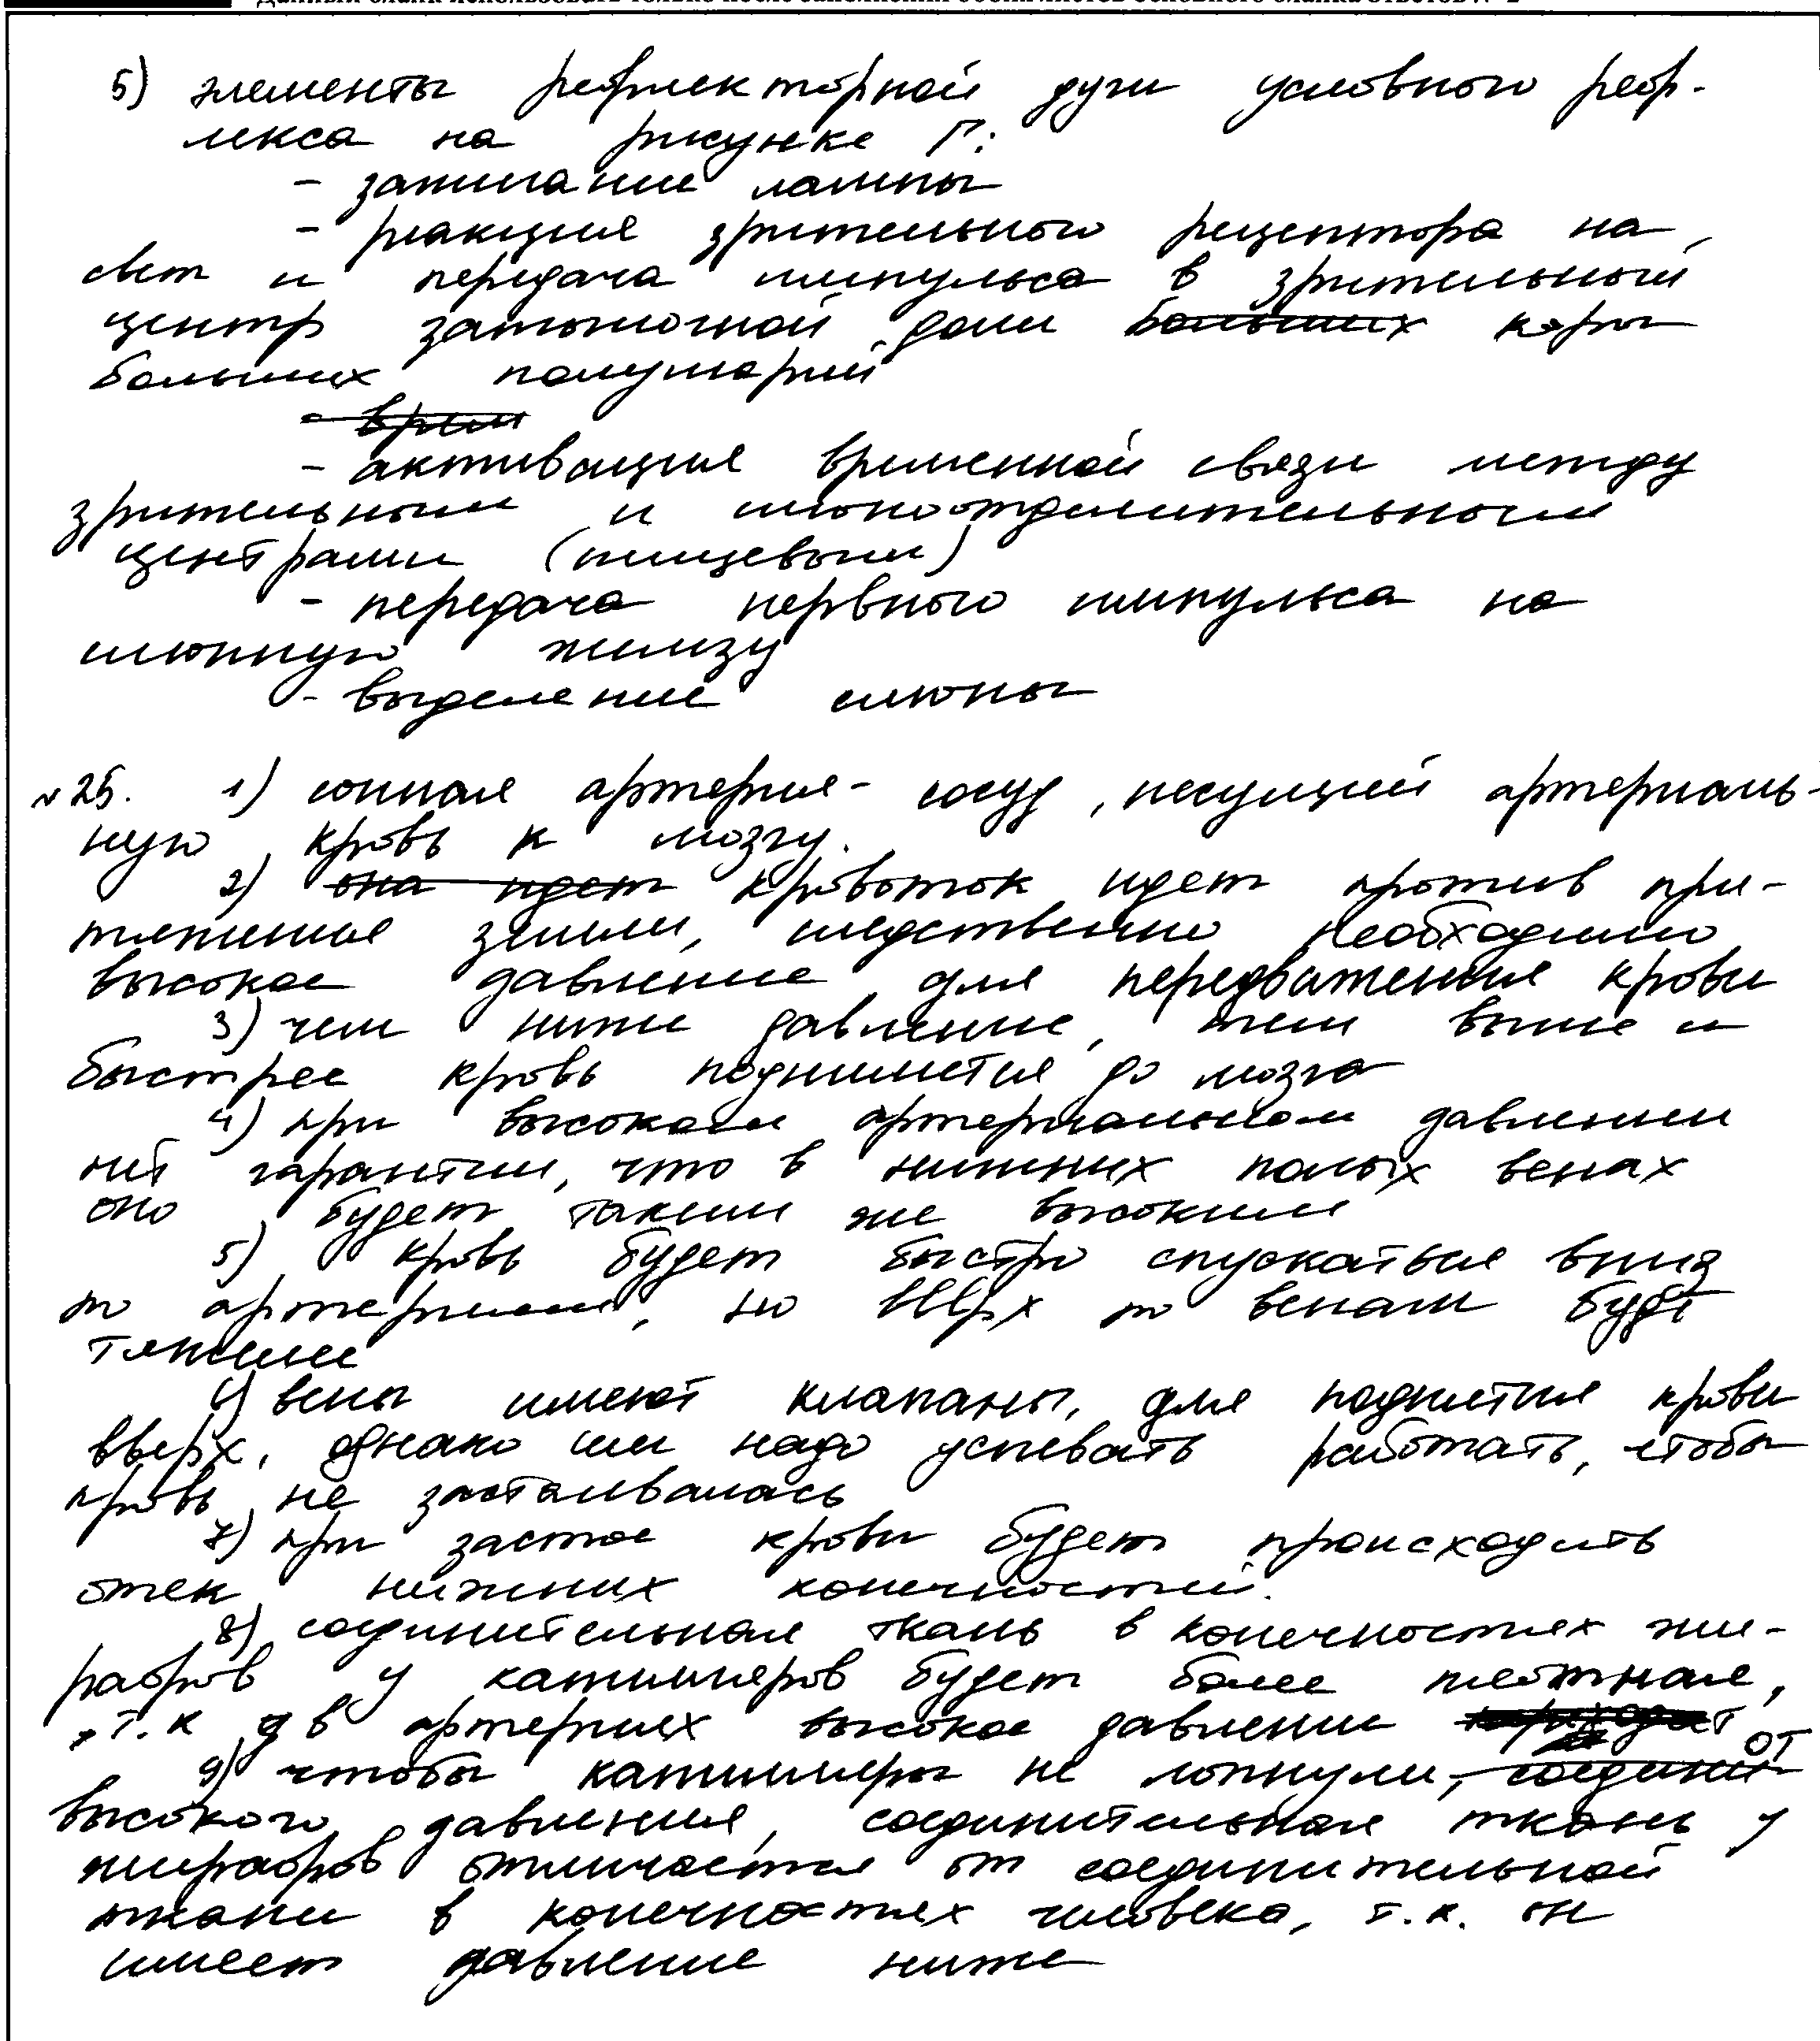 5) элементы рефлекторной дуги условного реф-
лекса на рисунке Г:
- зажигание лампы
- реакция зрительного рецептора на
свет и передача импульса в зрительный
центр затылочной доли больших коры
больших полушарий
- врем
- активация временной связи между
зрительным и слюноотделительным
центрами (пищевым)
- передача нервного импульса на
слюнную железу
- выделение слюны
№25. 1) сонная артерия - сосуд, несущий артериаль-
ную кровь к мозгу.
2) она идет кровоток идет против при-
тяжения земли, следственно необходимо
высокое давление для передвижения крови
3) чем ниже давление, тем выше и
быстрее кровь поднимется до мозга
4) при высоком артериальном давлении
нет гарантии, что в нижних полых венах
оно будет таким же высоким
5) кровь будет быстро спускаться вниз
по артериям, но вверх по венам будет
тяжелее
6) вены имеют клапаны, для поднятия крови
вверх, однако им надо успевать работать, чтобы
кровь не застаивалась
7) при застое крови будет происходить
отек нижних конечностей.
8) соединительная ткань в конечностях жи-
рафов у капилляров будет более плотная,
т.к в артериях высокое давление
9) чтобы капилляры не лопнули, соединит от
высокого давления, соединительная ткань у
жирафов отличается от соединительной
ткани в конечностях человека, т.к. он
имеет давление ниже